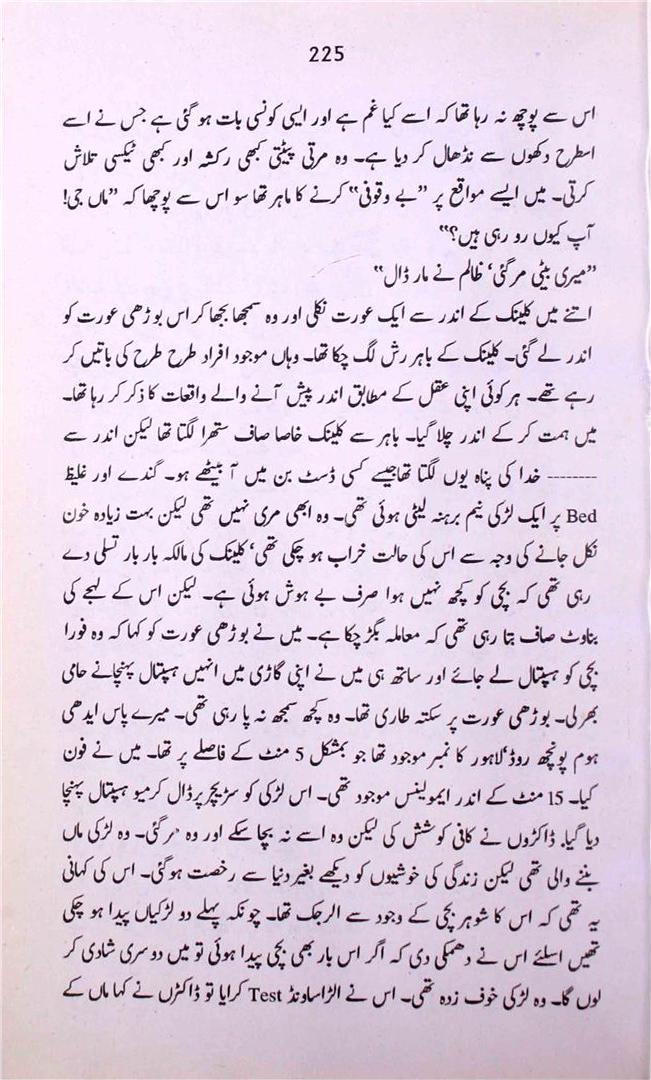 225
اس سے پوچھ نہ رہا تھا کہ اسے کیا غم ہے اور ایسی کونسی بات ہو گئی ہے جس نے اسے
اسطرح دکھوں سے نڈھال کر دیا ہے۔ وہ مرتی پیٹتی کبھی رکشہ اور کبھی ٹیکسی تلاش
کرتی۔ میں ایسے مواقع پر ”بے وقوفی“ کرنے کا ماہر تھا سو اس سے پوچھا کہ ”ماں جی!
آپ کیوں رو رہی ہیں؟“
”میری بیٹی مر گئی‘ ظالم نے مار ڈال“
اتنے میں کلینک کے اندر سے ایک عورت نکلی اور وہ سمجھا بجھا کر اس بوڑھی عورت کو
اندر لے گئی۔ کلینک کے باہر رش لگ چکا تھا۔ وہاں موجود افراد طرح طرح کی باتیں کر
رہے تھے۔ ہر کوئی اپنی عقل کے مطابق اندر پیش آنے والے واقعات کا ذکر کر رہا تھا۔
میں ہمت کر کے اندر چلا گیا۔ باہر سے کلینک خاصا صاف ستھرا لگتا تھا لیکن اندر سے
-------- خدا کی پناہ یوں لگتا تھا جیسے کسی ڈسٹ بن میں آ بیٹھے ہو۔ گندے اور غلیظ
Bed پر ایک لڑکی نیم برہنہ لیٹی ہوئی تھی۔ وہ ابھی مری نہیں تھی لیکن بہت زیادہ خون
نکل جانے کی وجہ سے اس کی حالت خراب ہو چکی تھی‘ کلینک کی مالکہ بار بار تسلی دے
رہی تھی کہ بچی کو کچھ نہیں ہوا صرف بے ہوش ہوئی ہے۔ لیکن اس کے لہجے کی
بناوٹ صاف بتا رہی تھی کہ معاملہ بگڑ چکا ہے۔ میں نے بوڑھی عورت کو کہا کہ وہ فورا
بچی کو ہسپتال لے جائے اور ساتھ ہی میں نے اپنی گاڑی میں انہیں ہسپتال پہنچانے حامی
بھر لی۔ بوڑھی عورت پر سکتہ طاری تھا۔ وہ کچھ سمجھ نہ پا رہی تھی۔ میرے پاس ایدھی
ہوم پونچھ روڈ‘ لاہور کا نمبر موجود تھا جو بمشکل 5 منٹ کے فاصلے پر تھا۔ میں نے فون
کیا۔ 15 منٹ کے اندر ایمولینس موجود تھی۔ اس لڑکی کو سڑیچر پر ڈال کر میو ہسپتال پہنچا
دیا گیا۔ ڈاکڑوں نے کافی کوشش کی لیکن وہ اسے نہ بچا سکے اور وہ مر گئی۔ وہ لڑکی ماں
بننے والی تھی لیکن زندگی کی خوشیوں کو دیکھے بغیر دنیا سے رخصت ہو گئی۔ اس کی کہانی
یہ تھی کہ اس کا شوہر بچی کے وجود سے الرجک تھا۔ چونکہ پہلے دو لڑکیاں پیدا ہو چکی
تھیں اسلئے اس نے دھمکی دی کہ اگر اس بار بھی بچی پیدا ہوئی تو میں دوسری شادی کر
لوں گا۔ وہ لڑکی خوف زدہ تھی۔ اس نے الڑاساونڈ Test کرایا تو ڈاکڑں نے کہا ماں کے